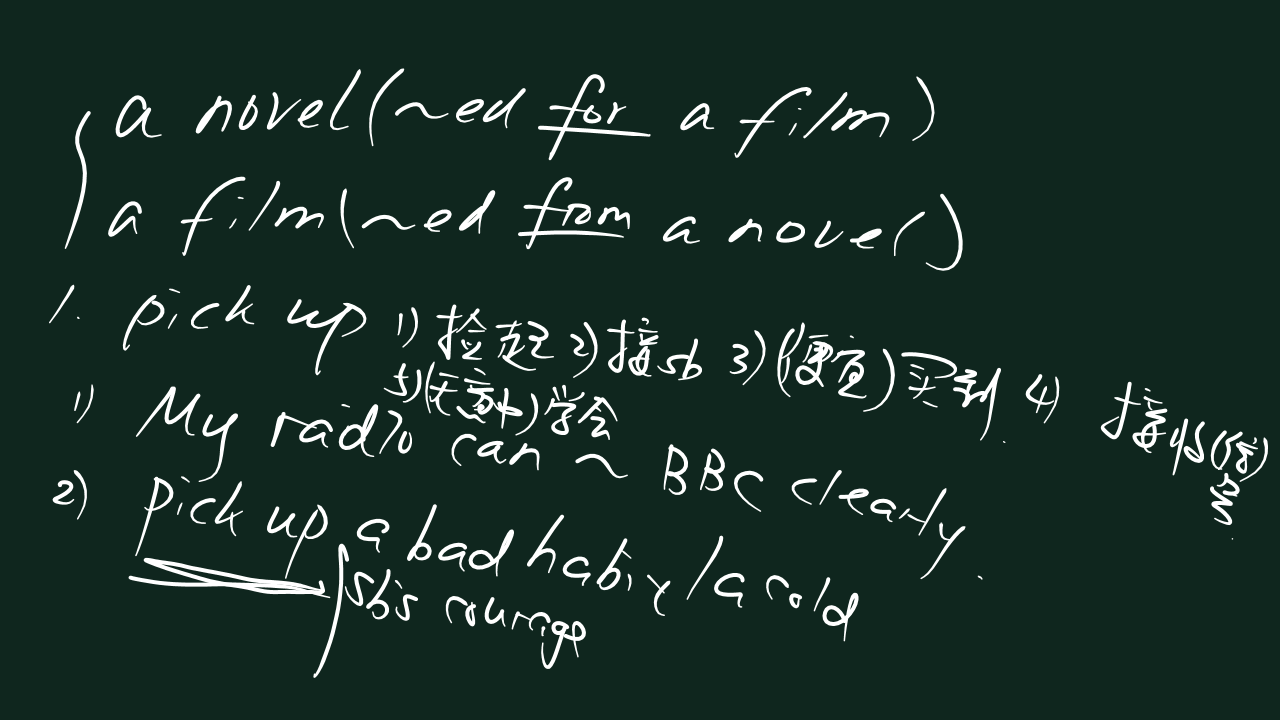 a novel (~ed for a film)
a film (~ed from a novel)
1. pick up 1) 捡起 2) 接sb 3) (便宜) 买到 4) 接收(信号)
5) (无意中) 学会
1) My radio can ~ BBC clearly.
2) pick up a bad habit / a cold
sb's courage